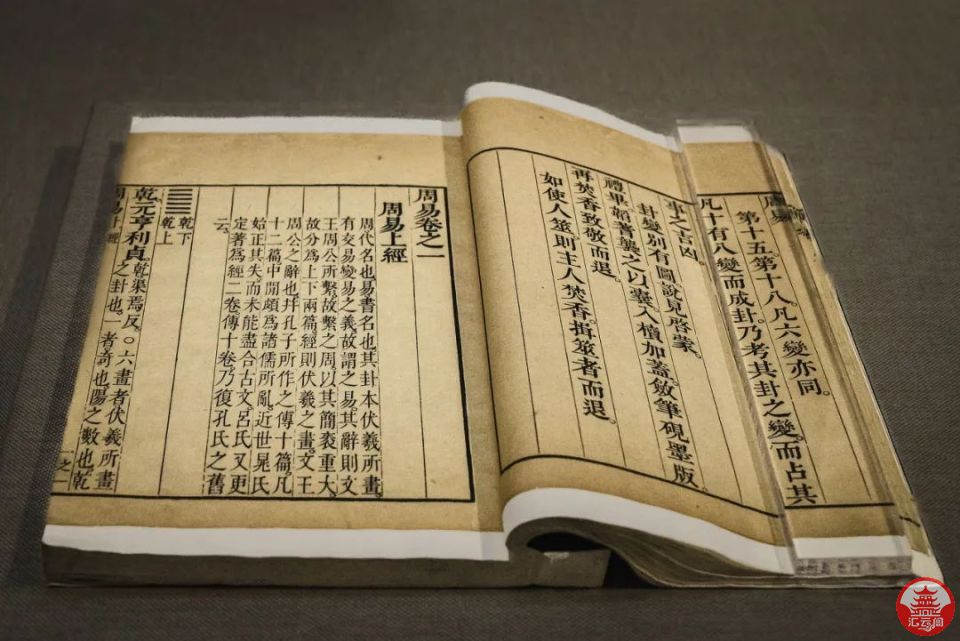 周易
第十五第十八。凡六變亦同。
凡十有八變而成卦。乃考其卦之變。而占其
事之吉凶。
卦變別有圖說見啓蒙。
禮畢韜蓍襲之以囊入櫝加蓋。斂筆硯墨版。
再焚香致敬而退。
如使人筮則主人焚香。揖筮者而退。
周易卷之一
周易上經
周代名也易書名也其卦本伏羲所畫
有交易變易之義故謂之易其辭則文
王周公所繫故繫之周以其簡袠重大
故分爲上下兩篇經則伏羲之畫文王
周公之辭也幷孔子所作之傳十篇凡
十二篇中間頗爲諸儒所亂近世晁氏
始正其失而未能盡合古文呂氏又更
定著爲經二卷傳十卷乃復孔氏之舊
云
乾下
乾上
乾。元亨利貞。乾渠焉反。○六畫者伏羲所畫
之卦也。者奇也陽之數也乾
周易
一之一
汇云阁